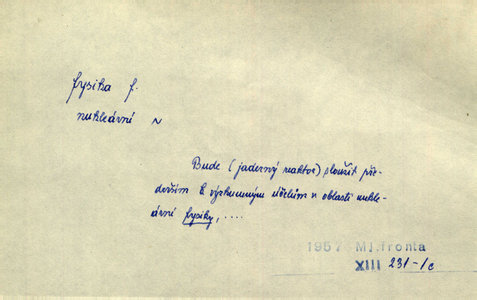 fysika f.
nukleární ~
Bude (jaderný reaktor) sloužit pře-
devším k výzkumným účelům v oblasti nukle-
ární fysiky, ....
1957 Ml.fronta
XIII 231-/c